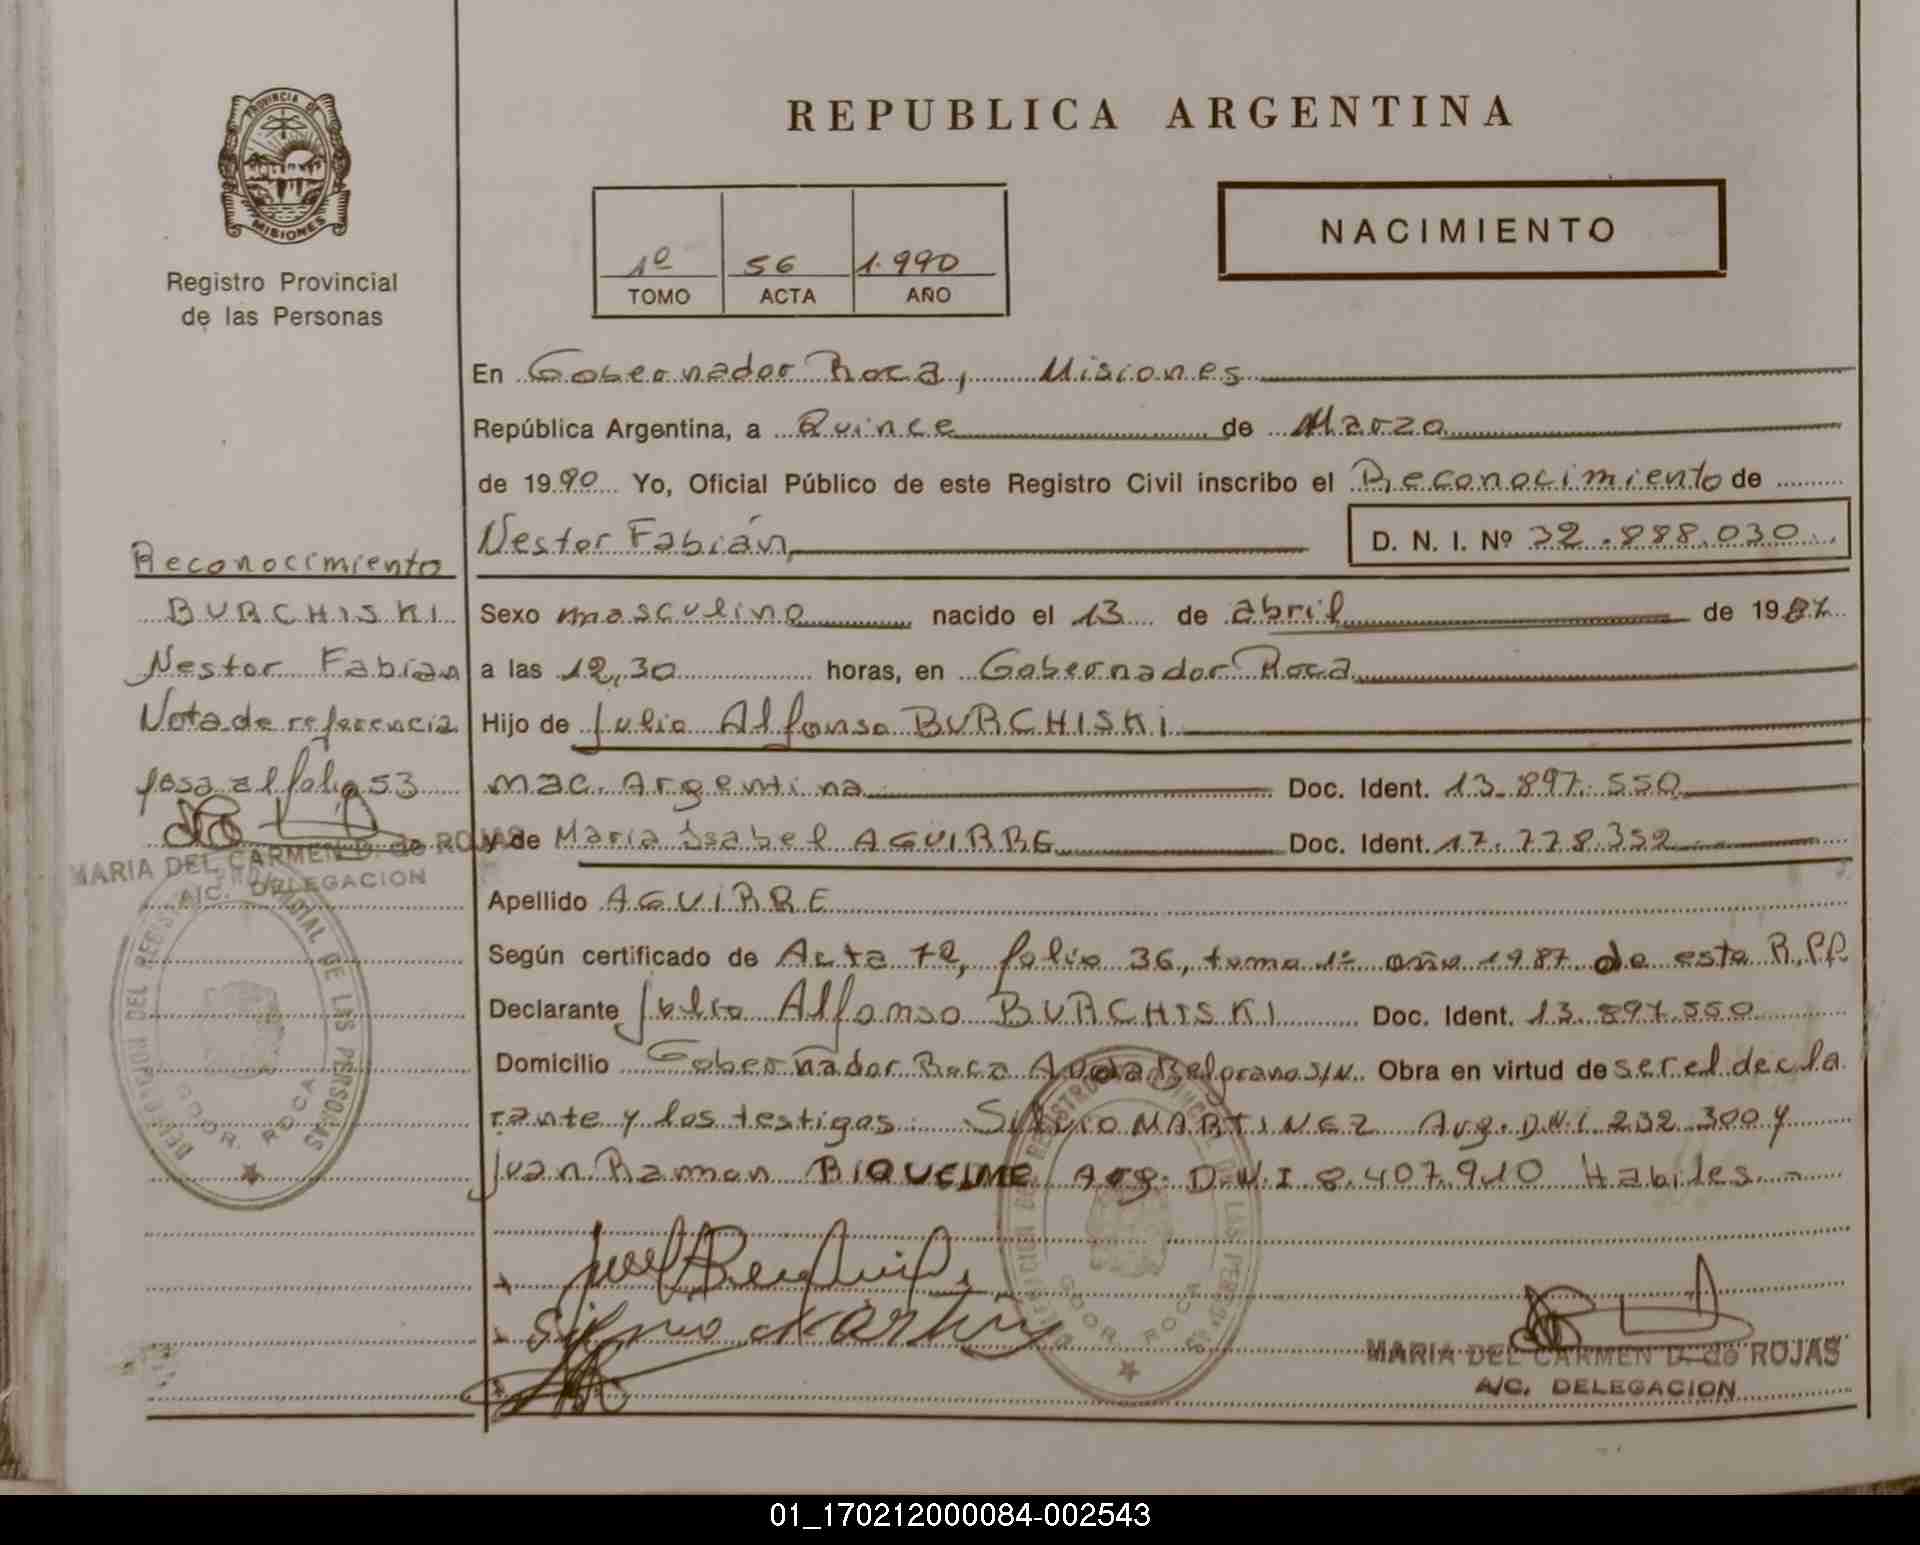 REPUBLICA ARGENTINA
PROVINCIA DE
MISIONES
Registro Provincial
de las Personas
1º 56 1.990
TOMO ACTA AÑO
NACIMIENTO
En Gobernador Roca, Misiones
República Argentina, a Quince de Marzo
de 1990 Yo, Oficial Público de este Registro Civil inscribo el Reconocimiento de
Nestor Fabián, D. N. I. Nº 32.888.030
Reconocimiento
BURCHISKI
Nestor Fabian
Nota de referencia
pasa al folio 53
MARIA DEL CARMEN D. de ROJAS
A/C. DELEGACION
GDOR. ROCA
Sexo masculino nacido el 13 de abril de 1987
a las 12,30 horas, en Gobernador Roca
Hijo de Julio Alfonso BURCHISKI
nac. Argentina Doc. Ident. 13.897.550
y de Maria Isabel AGUIRRE Doc. Ident. 17.778.352
Apellido AGUIRRE
Según certificado de Acta 72, folio 36, tomo 1º año 1987 de este R.PP.
Declarante Julio Alfonso BURCHISKI Doc. Ident. 13.897.550
Domicilio Gobernador Roca Avda Belgrano S/N. Obra en virtud de ser el decla
rante y los testigos: Silvio MARTINEZ Arg. D.N.I 232.300 y
Juan Ramon RIQUELME Arg. D.N.I 8.407.910 Habiles.-
Silvio Martinez
GDOR. ROCA
MARIA DEL CARMEN D. de ROJAS
A/C. DELEGACION
01_170212000084-002543